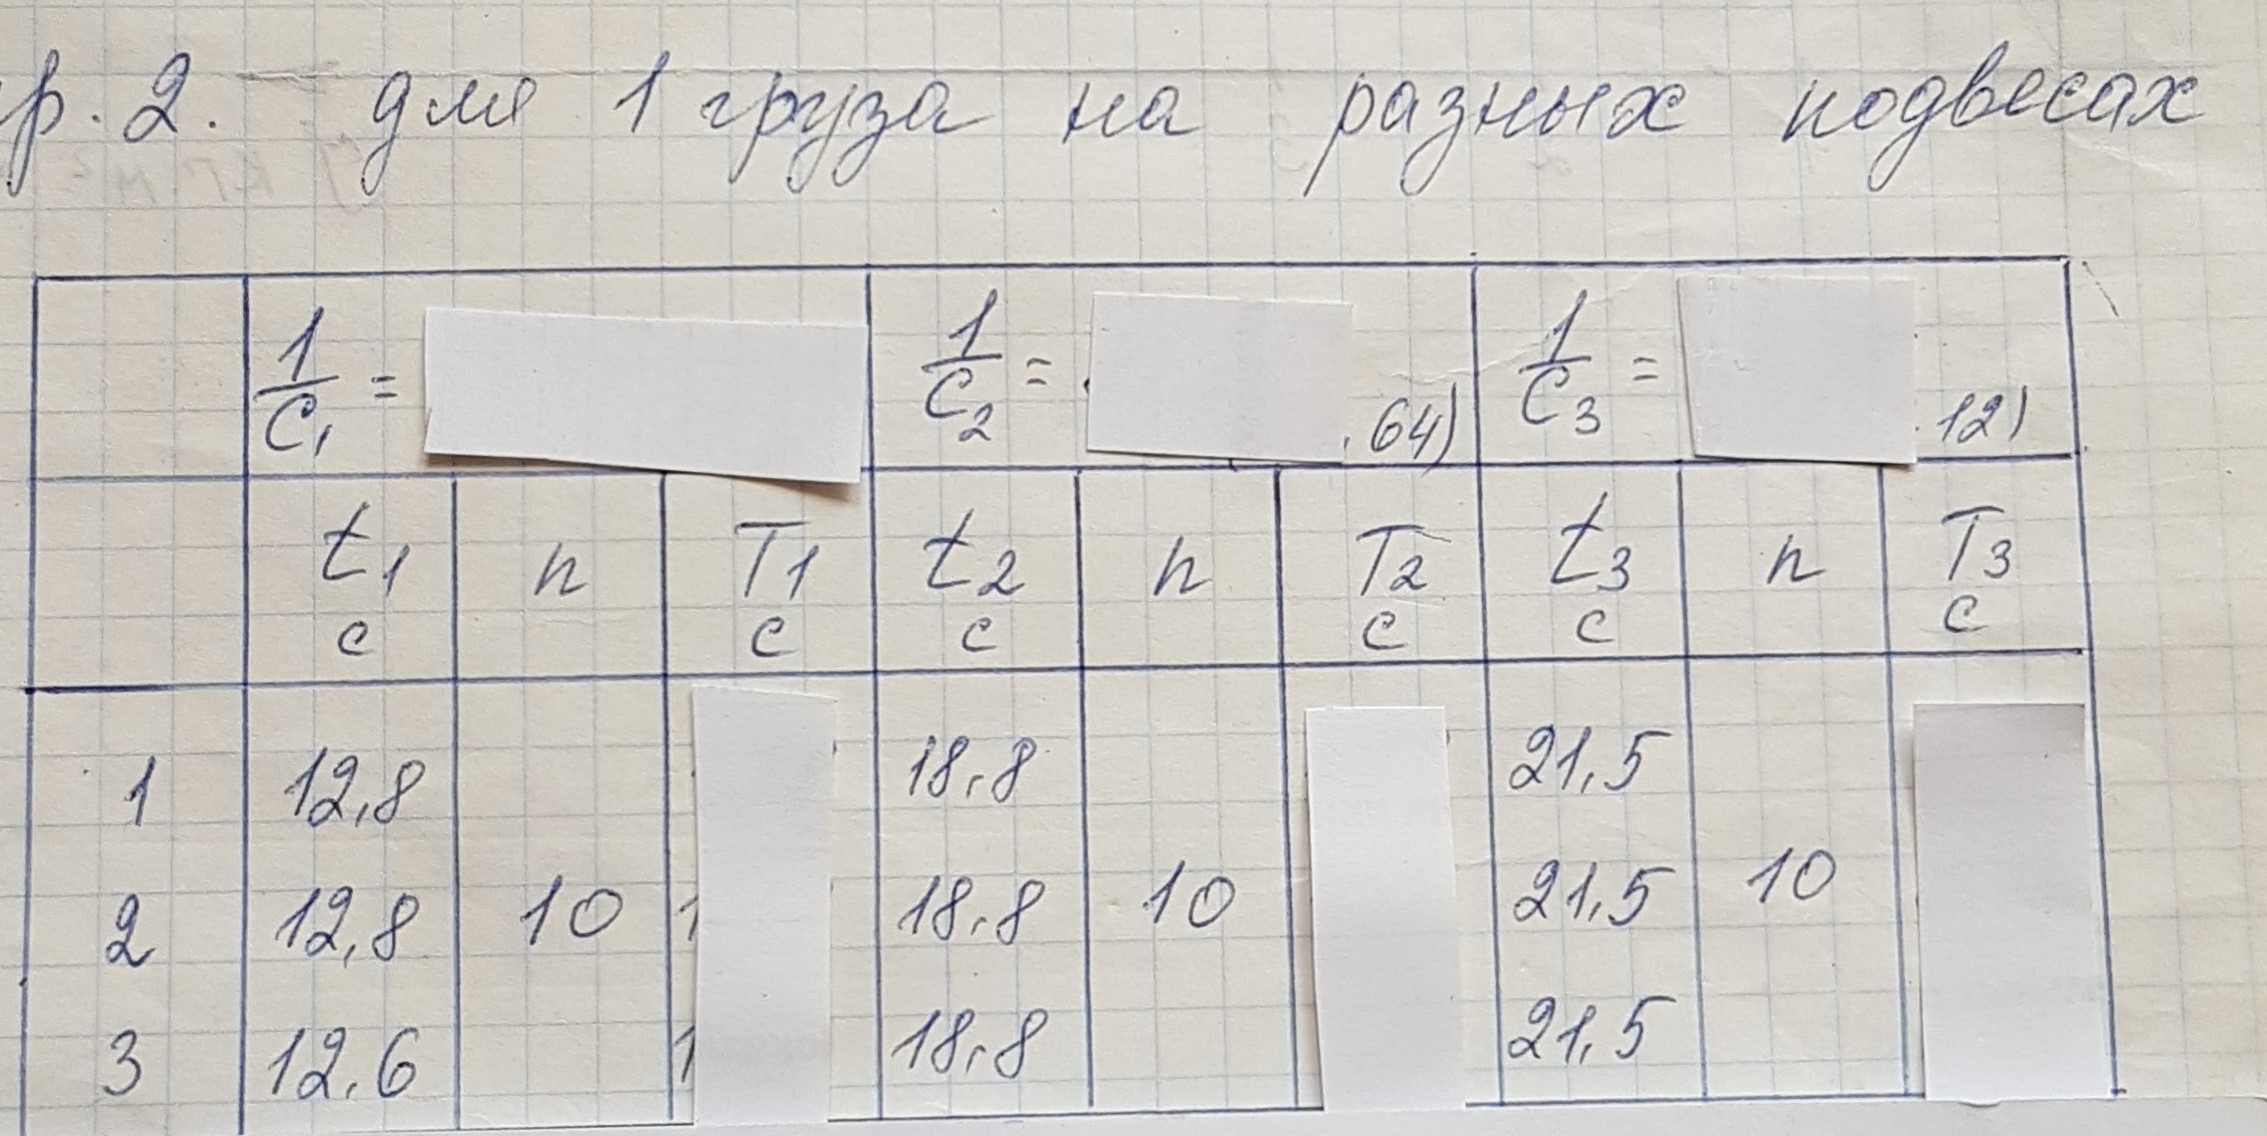 р. 2. для 1 груза на разных подвесах
1/C₁ = 1/C₂ = . 64) 1/C₃ = . 12)
t₁ n T₁ t₂ n T₂ t₃ n T₃
с с с с с с
1 12,8 18,8 21,5
2 12,8 10 1 18,8 10 21,5 10
3 12,6 1 18,8 21,5